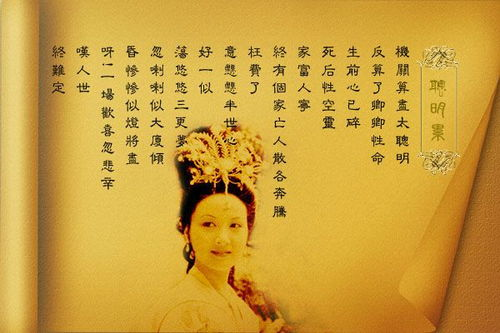 聰明累
機關算盡太聰明
反算了卿卿性命
生前心已碎
死后性空靈
家富人寧
終有個家亡人散各奔騰
枉費了
意懸懸半世心
好一似
蕩悠悠三更夢
忽喇喇似大廈傾
昏慘慘似燈將盡
呀!一場歡喜忽悲辛
嘆人世
終難定